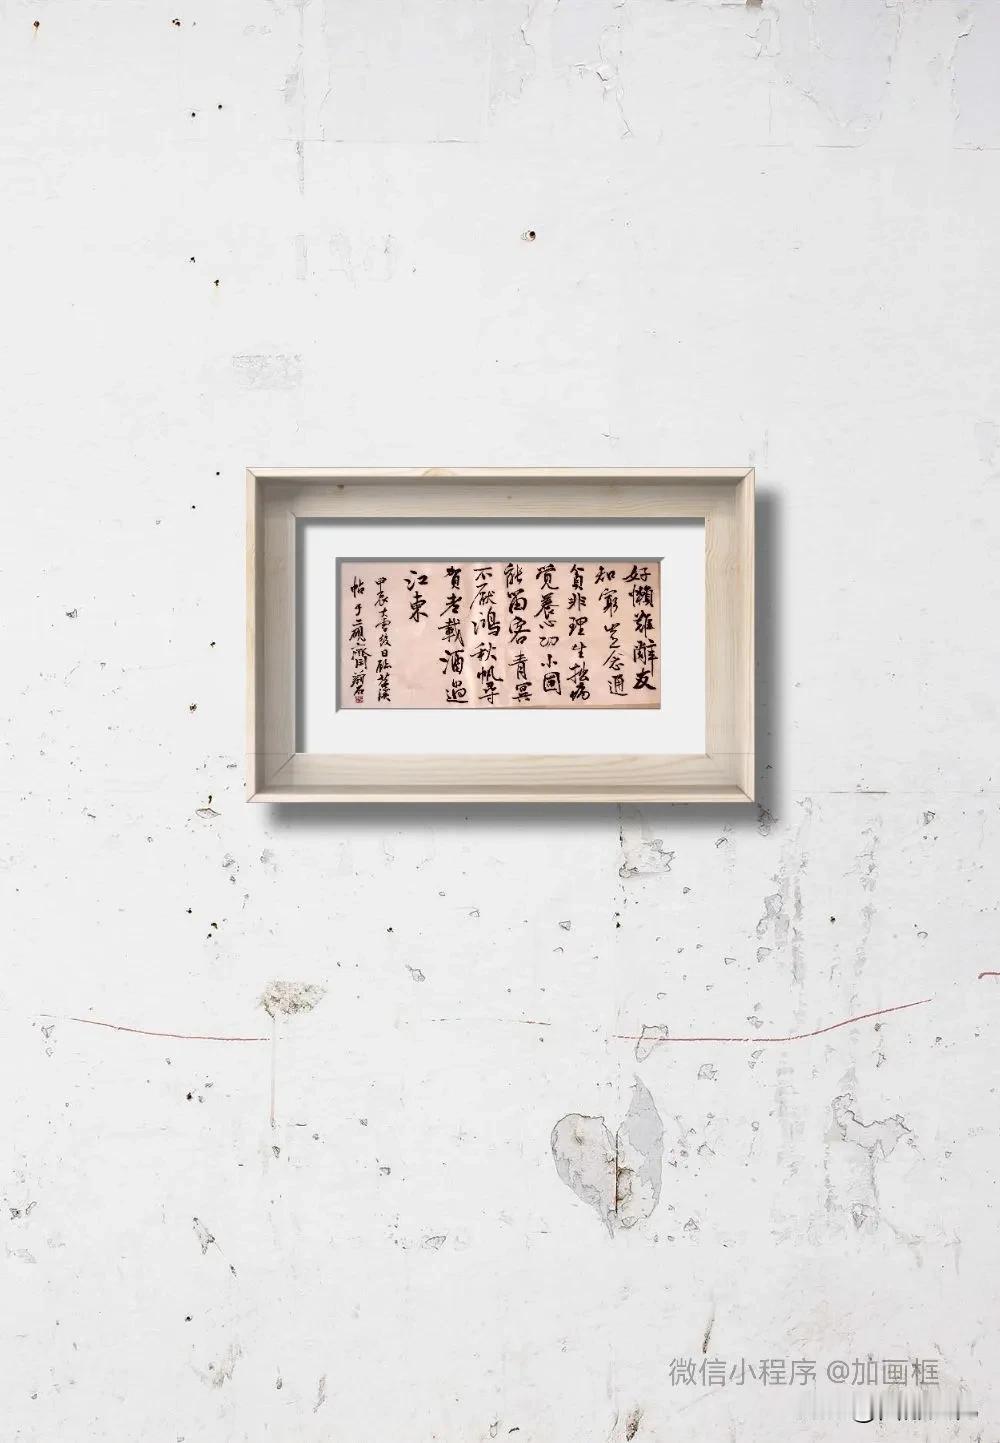 好懶難辭友
知窮豈念通
貧非理生拙病
覺養心功小圃
能留客青冥
不厭鴻秋帆尋
賀老載酒過
江東
甲辰大雪後日臨苕溪
帖于二硯齋
微信小程序 @加画框